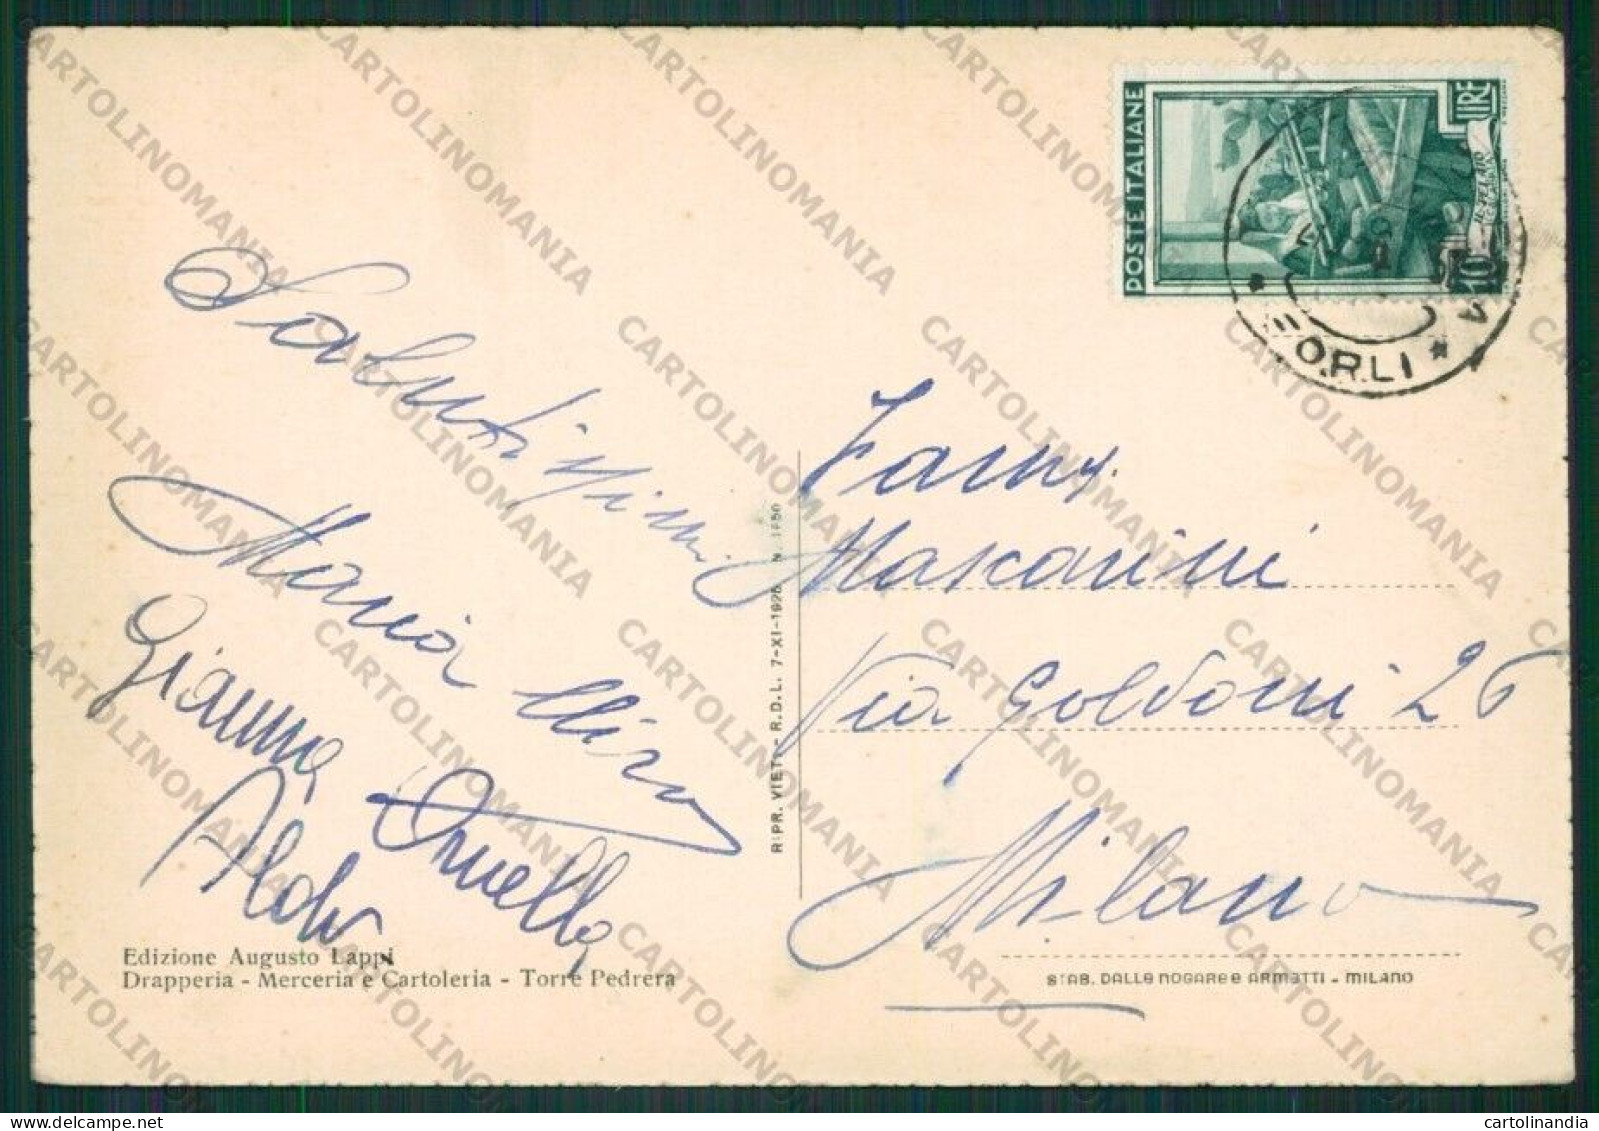 POSTE ITALIANE
LIRE
10
FORLI
Salutissimi
Maria
Gianna
Ornella
Aldo
Fam.
Mascarini
Via Goldoni 26
Milano
RIPR. VIET. - R.D.L. 7-XI-1925 N. 1950
Edizione Augusto Lappi
Drapperia - Merceria e Cartoleria - Torre Pedrera
STAB. DALLE NOGARE E ARMETTI - MILANO
CARTOLINOMANIA
cartolinandia